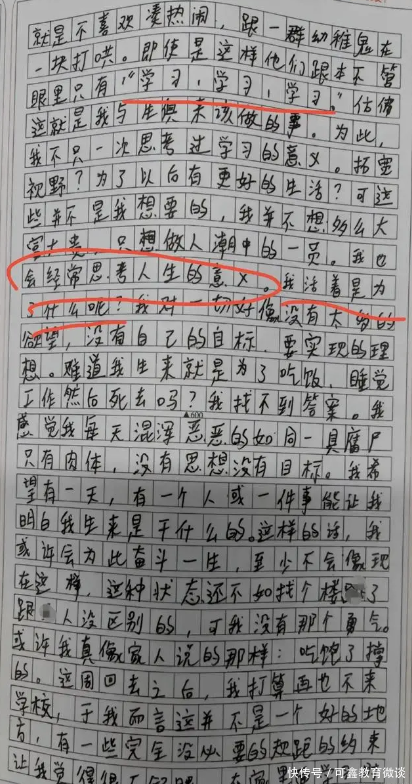 就是不喜欢凑热闹,跟一群幼稚鬼在
一块打哄。即使是这样他们跟本不管
眼里只有“学习,学习,学习。”估偖
这就是我与生俱来该做的事。为此,
我不只一次思考过学习的意义。拓宽
视野?为了以后有更好的生活?可这
些并不是我想要的,我并不想多么大
富大贵,只想做人潮中的一员。我也
会经常思考人生的意义。我活着是为
了什么呢?我对一切好像没有太多的
欲望,没有自己的目标,要实现的理
想。难道我生来就是为了吃饭,睡觉
工作然后死去吗?我找不到答案。我
▲600
感觉我每天混浑恶恶的如同一具腐尸
只有肉体,没有思想没有目标。我希
望有一天,有一个人或一件事能让我
明白我生来是干什么的。这样的话,我
或许会为此奋斗一生,至少不会像现
在这样,这种状态还不如找个楼 了
跟 人没区别的,可我没有那个勇气。
或许我真像家人说的那样:吃饱了撑
的。这周回去之后,我打算再也不来
学校,于我而言这并不是一个好的地
方,有一些完全没必要的规矩的约束
让我觉得很
快传号/可鑫教育微谈